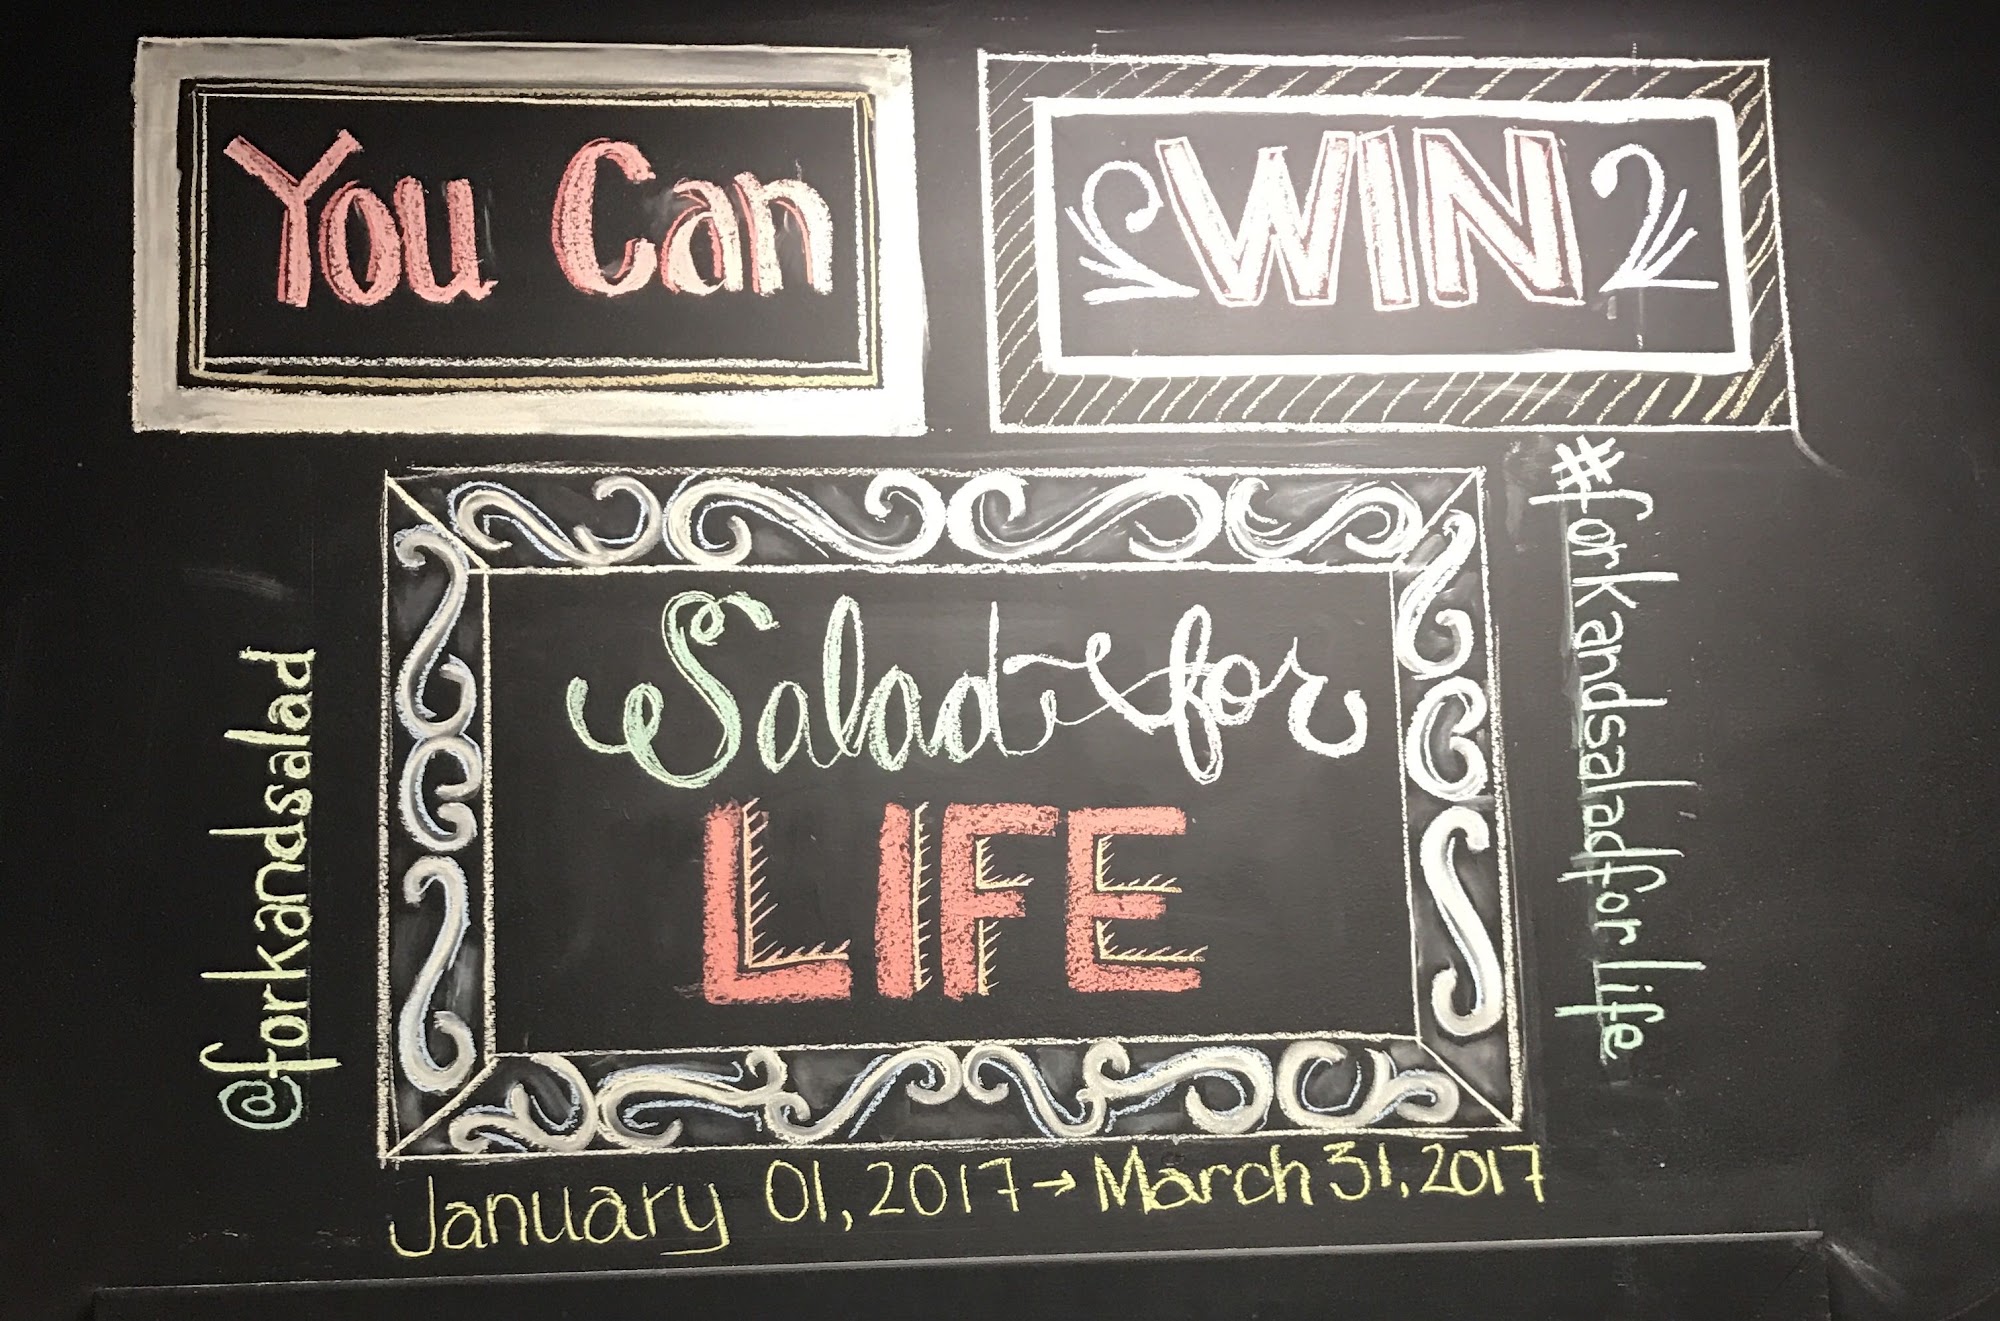 You Can
WIN
Salad for
LIFE
@forkandsalad
#forkandsaladforlife
January 01, 2017 → March 31, 2017